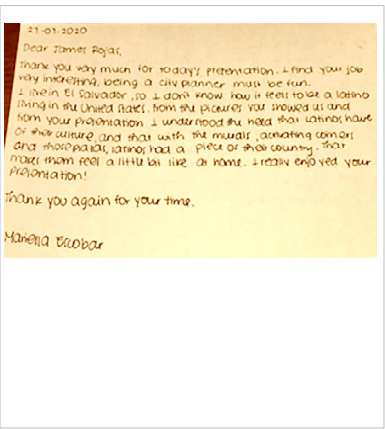 27-07-2020
Dear James Rojas,
Thank you very much for today's presentation. I find your job
very interesting, being a city planner must be fun.
I live in El Salvador, so I don't know how it feels to be a latino
living in the United States. From the pictures you showed us and
from your presentation I understood the need that Latinos have
of their culture, and that with the murals, activating corners
and those palas, latinos had a piece of their country. That
makes them feel a little bit like at home. I really enjoyed your
presentation!
Thank you again for your time.
Mariella Escobar